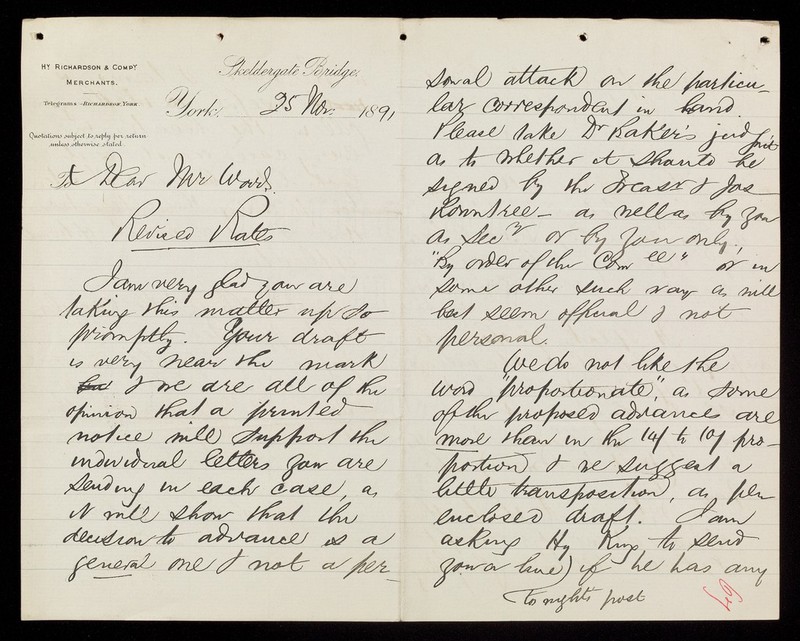 Hy Richardson & Compy
Merchants.
Telegrams - Richardson, York
Quotations subject to reply per return
unless otherwise stated.
Skeldergate Bridge,
York, 25 Nov. 1891
Dear Mr Ward,
Revised Rates
I am very glad you are
taking this matter up so
promptly. Your draft
is very near the mark
& we are all of the
opinion that a printed
notice will support the
individual letters you are
sending in each case, as
it will show that the
decision to advance is a
general one & not a per-
sonal attack on the particu-
lar correspondent in hand.
Please take Dr Baker's
as to whether it should be
signed by the Treasr & Jos
Rowntree - as well as by you
as Secry or by you only,
"By order of the Comee" or in
some other such way as will
best seem official & not
personal.
We do not like the
word "proportionate", as some
of the proposed advances are
more than in the 14/ to 10/ pro-
portion & we suggest a
little transposition, as per
enclosed draft. I am
asking Hy King to send
you a line) if he has any
to nights post